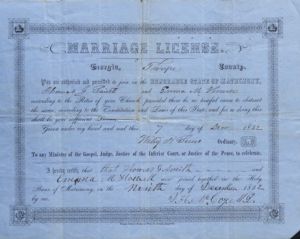 MARRIAGE LICENSE.
Georgia, Troup County.
You are authorized and permitted to join in the HONORABLE STATE OF MATRIMONY,
Thomas J. Smith and Emma M.
according to the Rites of your Church provided there be no lawful cause to obstruct
the same, according to the Constitution and Laws of this State, and for so doing this
shall be your sufficient License.
Given under my hand and seal this 7 day of Dec 1882
Ordinary.
To any Minister of the Gospel, Judge, Justice of the Inferior Court, or Justice of the Peace, to celebrate.
I hereby certify, that Thomas J. Smith
and M. were joined together in the Holy
Bans of Matrimony, on the Ninth day of December 1882
by me.